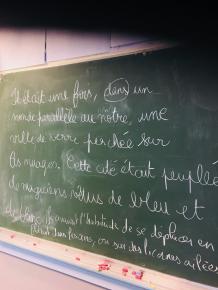 Il était une fois, dans un
monde parallèle au nôtre, une
ville de verre perchée sur
les nuages. Cette cité était peuplée
de magiciens vêtus de bleu et
de blanc qui avaient l'habitude de se déplacer en
dans les airs, ou sur des licornes ailées